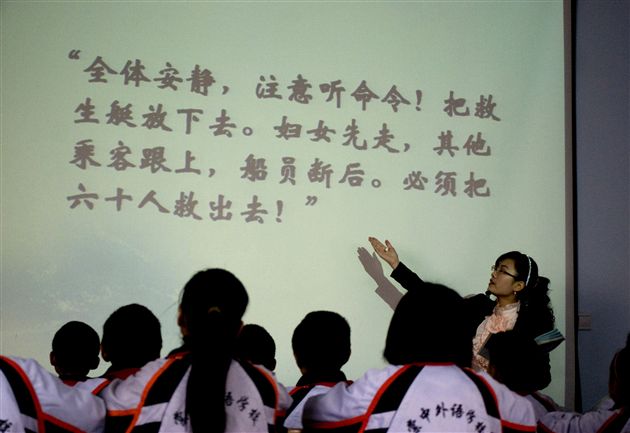 “全体安静，注意听命令！把救
生艇放下去。妇女先走，其他
乘客跟上，船员断后。必须把
六十人救出去！”
外语学校